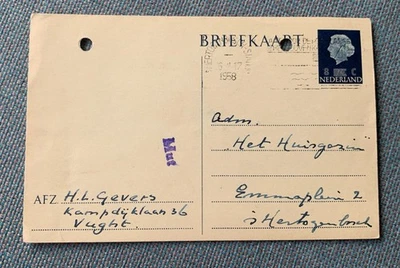 BRIEFKAART
1958
8 C
NEDERLAND
Mut
Adm.
„Het Huisgezin"
Emmaplein 2
's Hertogenbosch
AFZ H.L. Gevers
Kampdijklaan 36
Vught.